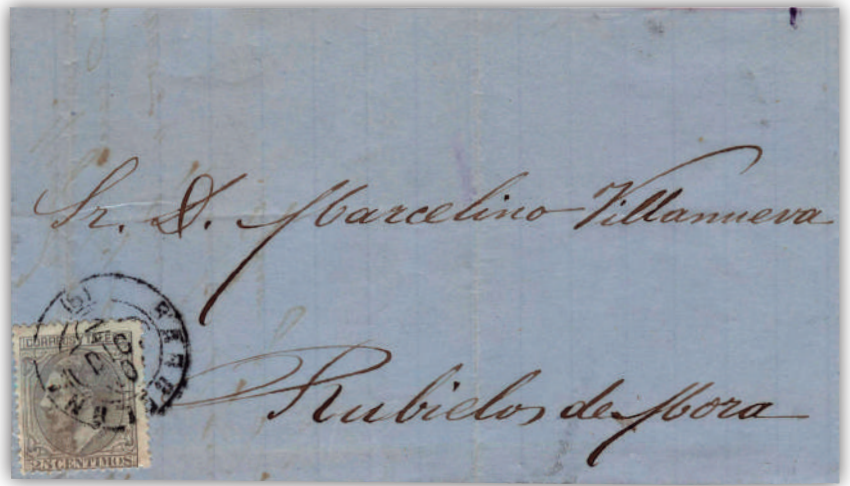 Sr. D. Marcelino Villanueva
Rubielos de Mora
CORREOS Y TELEG
25 CENTIMOS